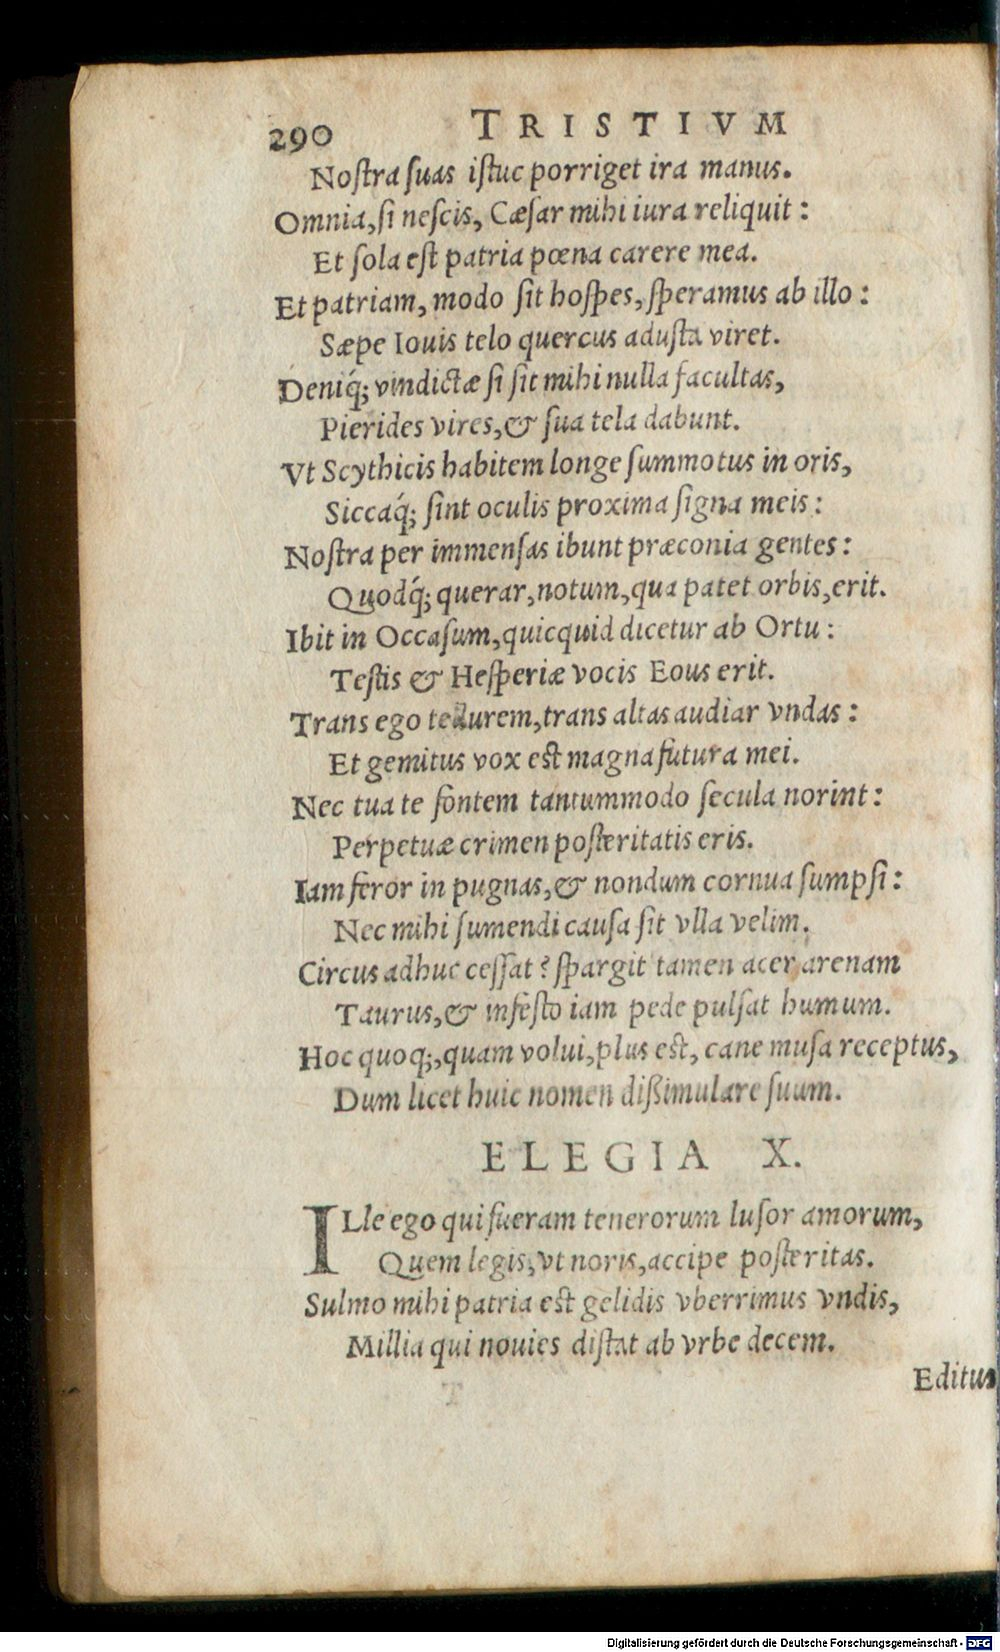 290 TRISTIVM
Noſtra ſuas iſtuc porriget ira manus.
Omnia, ſi neſcis, Cæſar mihi iura reliquit:
Et ſola eſt patria pœna carere mea.
Et patriam, modo ſit hoſpes, ſperamus ab illo:
Sæpe Iouis telo quercus aduſta viret.
Deniq́; vindictæ ſi ſit mihi nulla facultas,
Pierides vires, & ſua tela dabunt.
Vt Scythicis habitem longe ſummotus in oris,
Siccaq́; ſint oculis proxima ſigna meis:
Noſtra per immenſas ibunt præconia gentes:
Quodq́; querar, notum, qua patet orbis, erit.
Ibit in Occaſum, quicquid dicetur ab Ortu:
Teſtis & Heſperiæ vocis Eous erit.
Trans ego tellurem, trans altas audiar vndas:
Et gemitus vox eſt magna futura mei.
Nec tua te ſontem tantummodo ſecula norint:
Perpetuæ crimen poſteritatis eris.
Iam feror in pugnas, & nondum cornua ſumpſi:
Nec mihi ſumendi cauſa ſit vlla velim.
Circus adhuc ceſſat? ſpargit tamen acer arenam
Taurus, & infeſto iam pede pulſat humum.
Hoc quoq;, quam volui, plus eſt, cane muſa receptus,
Dum licet huic nomen dißimulare ſuum.
ELEGIA X.
ILle ego qui fueram tenerorum luſor amorum,
Quem legis, vt noris, accipe poſteritas.
Sulmo mihi patria eſt gelidis vberrimus vndis,
Millia qui nouies diſtat ab vrbe decem.
Editus
Digitalisierung gefördert durch die Deutsche Forschungsgemeinschaft - DFG